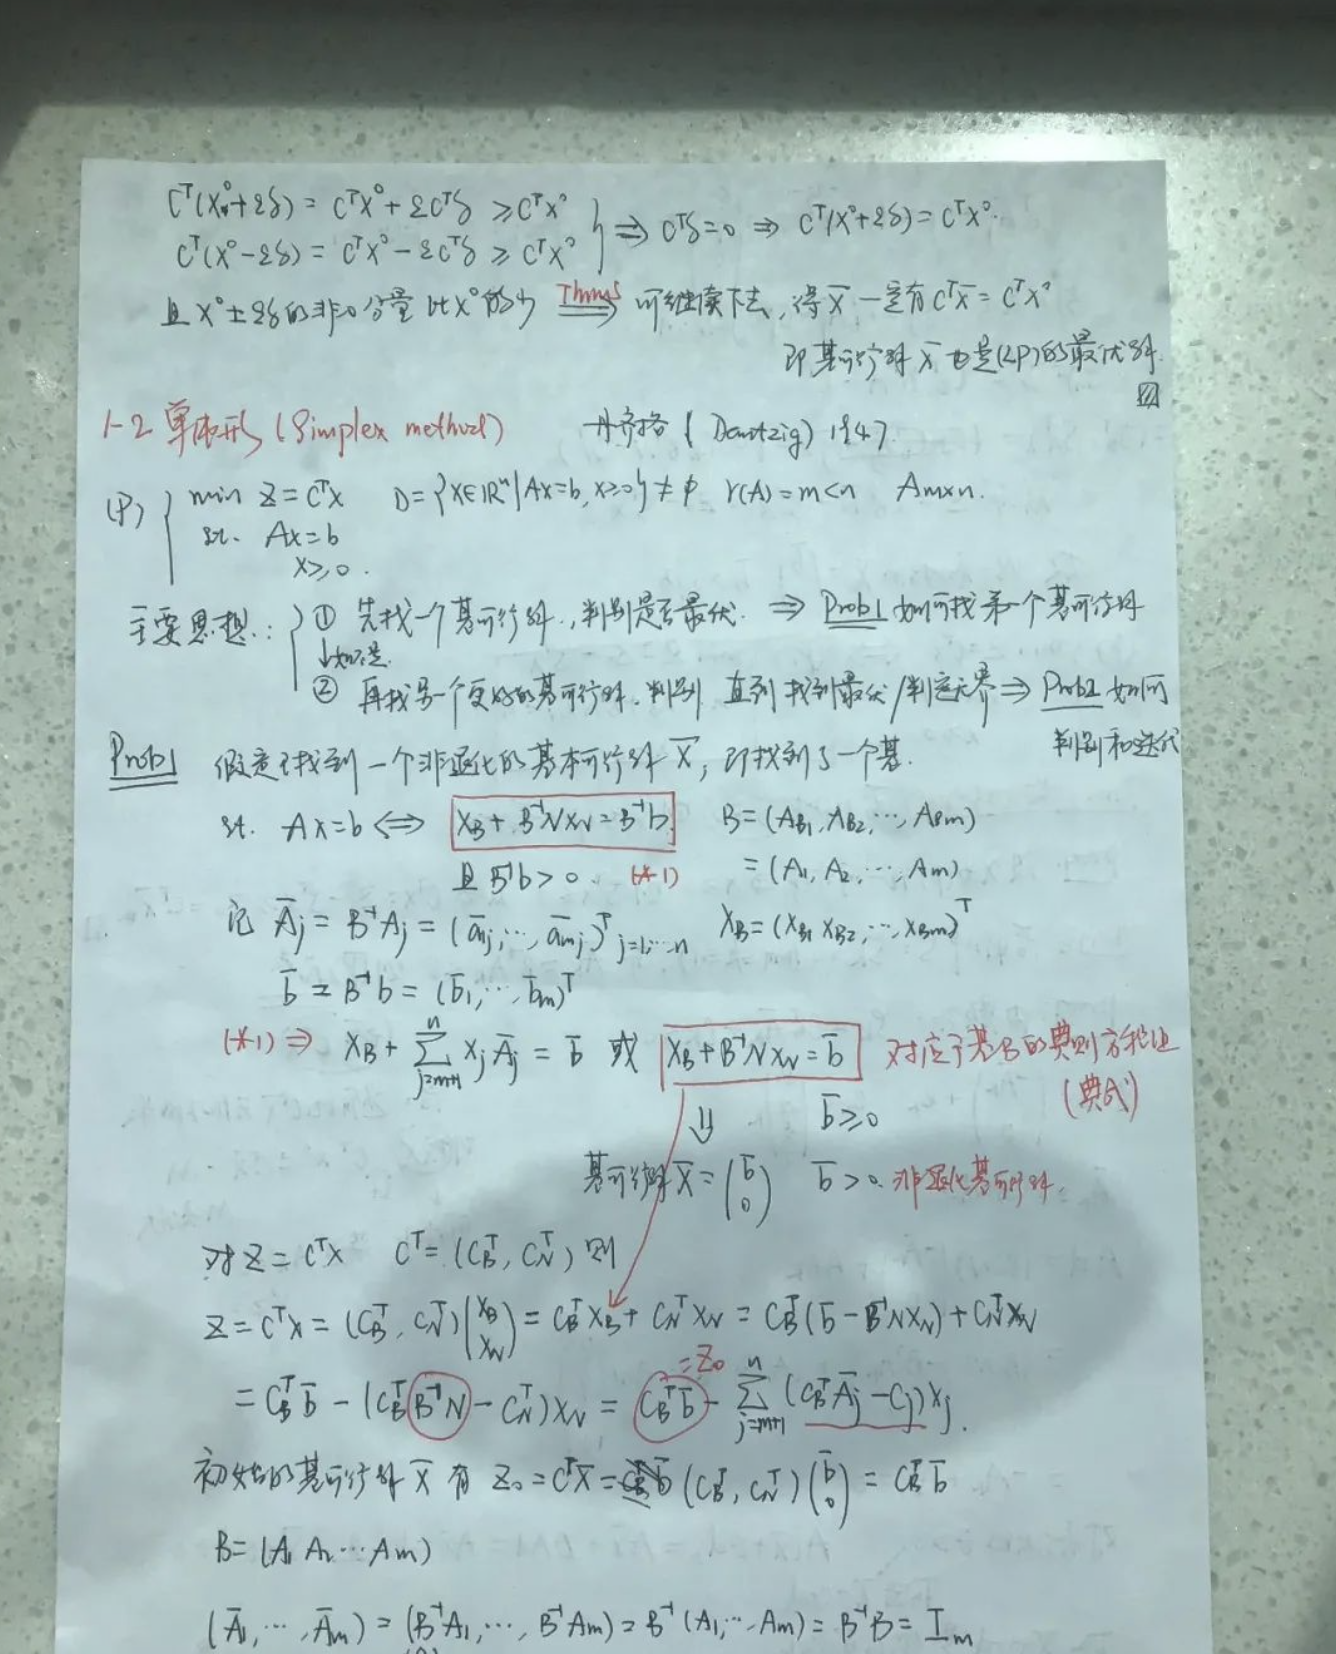 Cᵀ(X⁰+εδ) = CᵀX⁰+εCᵀδ ≥ CᵀX⁰
Cᵀ(X⁰-εδ) = CᵀX⁰-εCᵀδ ≥ CᵀX⁰ } ⇒ Cᵀδ=0 ⇒ Cᵀ(X⁰+εδ) = CᵀX⁰.
且X⁰±εδ的非0分量比X⁰的少 ⟹ 可继续下去,得X̄一定有CᵀX̄ = CᵀX⁰
即基可行解X̄也是(LP)的最优解.
1-2 单纯形 (Simplex method) 丹齐格 (Dantzig) 1947.
(P) { min Z=CᵀX D={X∈ℝⁿ|Ax=b, x≥0}≠φ r(A)=m<n Am×n.
st. Ax=b
x≥0.
主要思想: { ① 先找一个基可行解, 判别是否最优. ⇒ Prob1 如何找第一个基可行解
↓如不是.
② 再找另一个更好的基可行解. 判别 直到找到最优/判定无界 ⇒ Prob2 如何
判别和迭代
Prob1 假定已找到一个非退化的基本可行解X̄, 即找到了一个基.
st. Ax=b ⟺ X_B+B⁻¹NX_N=B⁻¹b. B=(A_B1, A_B2, ⋯, A_Bm)
且B⁻¹b>0 (*1) =(A₁, A₂, ⋯, Am)
记 Āj = B⁻¹Aj = (ā₁j, ⋯, āmj)ᵀ j=1,⋯n X_B=(X_B1 X_B2, ⋯, X_Bm)ᵀ
b̄ = B⁻¹b = (b̄₁, ⋯, b̄m)ᵀ
(*1) ⇒ X_B + ∑_{j=m+1}^{n} Xj Āj = b̄ 或 X_B+B⁻¹NX_N=b̄ 对应于基B的典则方程组
(典式)
⇓ b̄≥0
基可行解X̄=(b̄ 0) b̄>0. 非退化基可行解.
对Z=CᵀX Cᵀ=(C_Bᵀ, C_Nᵀ) 则
Z=CᵀX=(C_Bᵀ, C_Nᵀ)(X_B X_N)=C_BᵀX_B+C_NᵀX_N=C_Bᵀ(b̄-B⁻¹NX_N)+C_NᵀX_N
=Z₀
=C_Bᵀb̄-(C_BᵀB⁻¹N-C_Nᵀ)X_N=C_Bᵀb̄-∑_{j=m+1}^{n}(C_BᵀĀj-Cj)Xj.
初始的基可行解X̄有 Z₀=CᵀX̄=(C_Bᵀ, C_Nᵀ)(b̄ 0)=C_Bᵀb̄
B=(A₁ A₂ ⋯ Am)
(Ā₁, ⋯, Ām)=(B⁻¹A₁, ⋯, B⁻¹Am)=B⁻¹(A₁, ⋯ Am)=B⁻¹B=Im